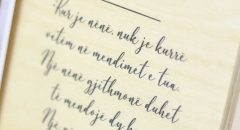 Kur je nënë, nuk je kurrë
vetëm në mendimet e tua.
Një nënë gjithmonë duhet
të mendojë dy herë
Një